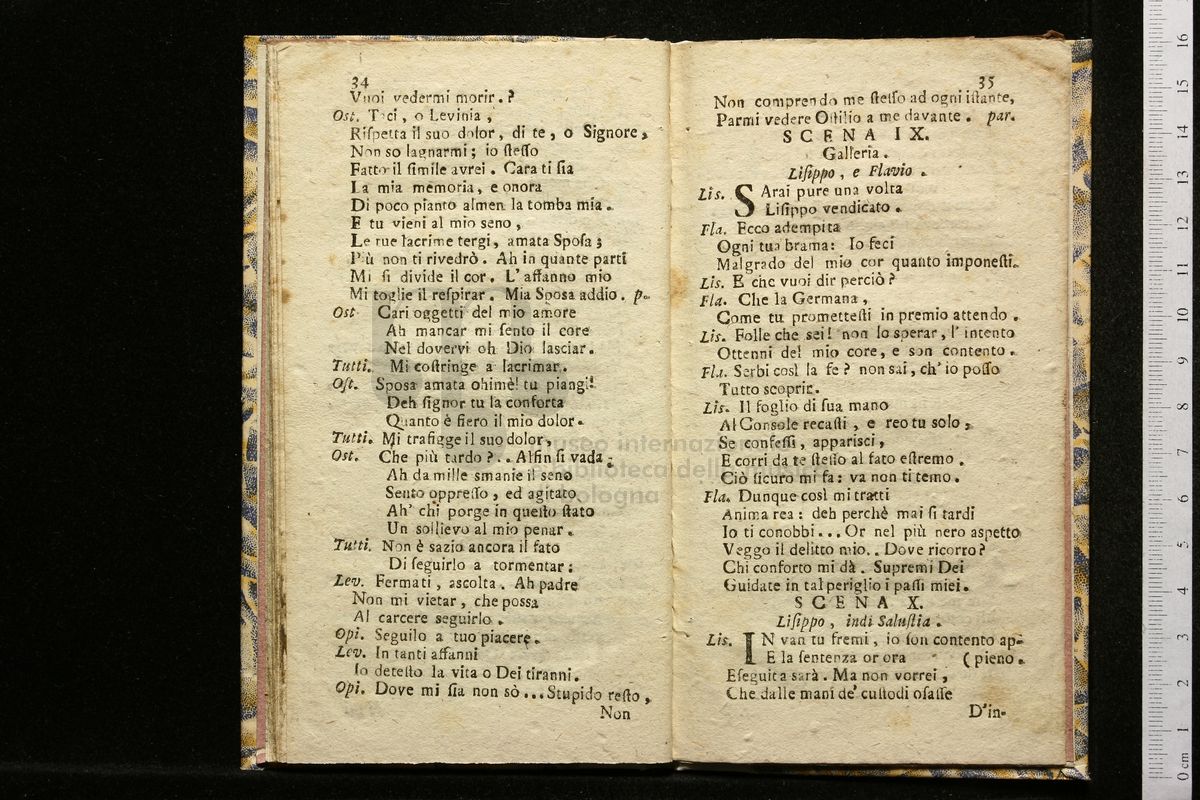 34
Vuoi vedermi morir.?
Ost. Taci, o Levinia,
Riſpetta il suo dolor, di te, o Signore,
Non so lagnarmi; io ſteſſo
Fatto il ſimile avrei. Cara ti ſia
La mia memoria, e onora
Di poco pianto almen la tomba mia.
E tu vieni al mio seno,
Le tue lacrime tergi, amata Spoſa;
Più non ti rivedrò. Ah in quante parti
Mi ſi divide il cor. L'affanno mio
Mi toglie il reſpirar. Mia Sposa addio. p.
Ost Cari oggetti del mio amore
Ah mancar mi ſento il core
Nel dovervi oh Dio lasciar.
Tutti. Mi coſtringe a lacrimar.
Oſt. Sposa amata ohimè! tu piangi!
Deh ſignor tu la conforta
Quanto è fiero il mio dolor.
Tutti. Mi trafigge il suo dolor,
Ost. Che più tardo?.. Alfin ſi vada;
Ah da mille smanie il seno
Sento oppreſſo, ed agitato
Ah' chi porge in queſto ſtato
Un sollievo al mio penar.
Tutti. Non è sazio ancora il fato
Di ſeguirlo a tormentar:
Lev. Fermati, ascolta. Ah padre
Non mi vietar, che possa
Al carcere seguirlo.
Opi. Seguilo a tuo piacere.
Lev. In tanti affanni
Io deteſto la vita o Dei tiranni.
Opi. Dove mi ſia non sò... Stupido reſto,
Non
35
Non comprendo me ſteſſo ad ogni iſtante,
Parmi vedere Oſtilio a me davante. par.
SCENA IX.
Galleria.
Liſippo, e Flavio.
Lis. SArai pure una volta
Liſippo vendicato.
Fla. Ecco adempita
Ogni tua brama: Io feci
Malgrado del mio cor quanto imponeſti.
Lis. E che vuoi dir perciò?
Fla. Che la Germana,
Come tu prometteſti in premio attendo.
Lis. Folle che sei! non lo sperar, l'intento
Ottenni del mio core, e son contento.
Fla. Serbi così la fe? non sai, ch'io poſſo
Tutto scoprir.
Lis. Il foglio di ſua mano
Al Console recaſti, e reo tu solo,
Se confeſſi, appariſci,
E corri da te ſteſſo al fato eſtremo.
Ciò ſicuro mi fa: va non ti temo.
Fla. Dunque così mi tratti
Anima rea: deh perchè mai ſi tardi
Io ti conobbi... Or nel più nero aspetto
Veggo il delitto mio.. Dove ricorro?
Chi conforto mi dà. Supremi Dei
Guidate in tal periglio i paſſi miei.
SCENA X.
Liſippo, indi Saluſtia.
Lis. IN van tu fremi, io ſon contento ap-
E la ſentenza or ora (pieno.
Eſeguita sarà. Ma non vorrei,
Che dalle mani de' cuſtodi oſaſſe
D'in-
museo internazionale
biblioteca della musica
bologna
0 cm 1 2 3 4 5 6 7 8 9 10 11 12 13 14 15 16